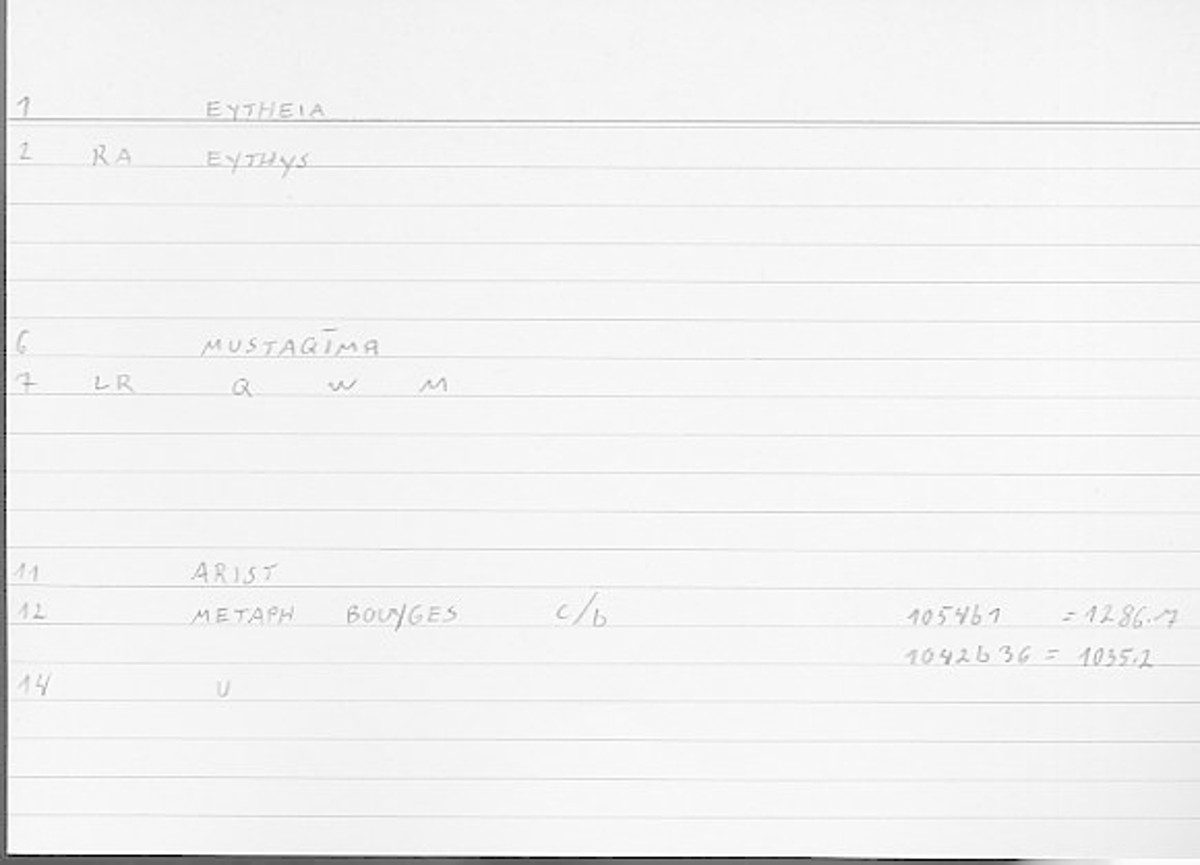 1 EYTHEIA
2 RA EYTHYS
6 MUSTAQĪMA
7 LR Q W M
11 ARIST
12 METAPH BOUYGES C/b 1054b1 = 1286.17
1042b36 = 1035.2
14 U